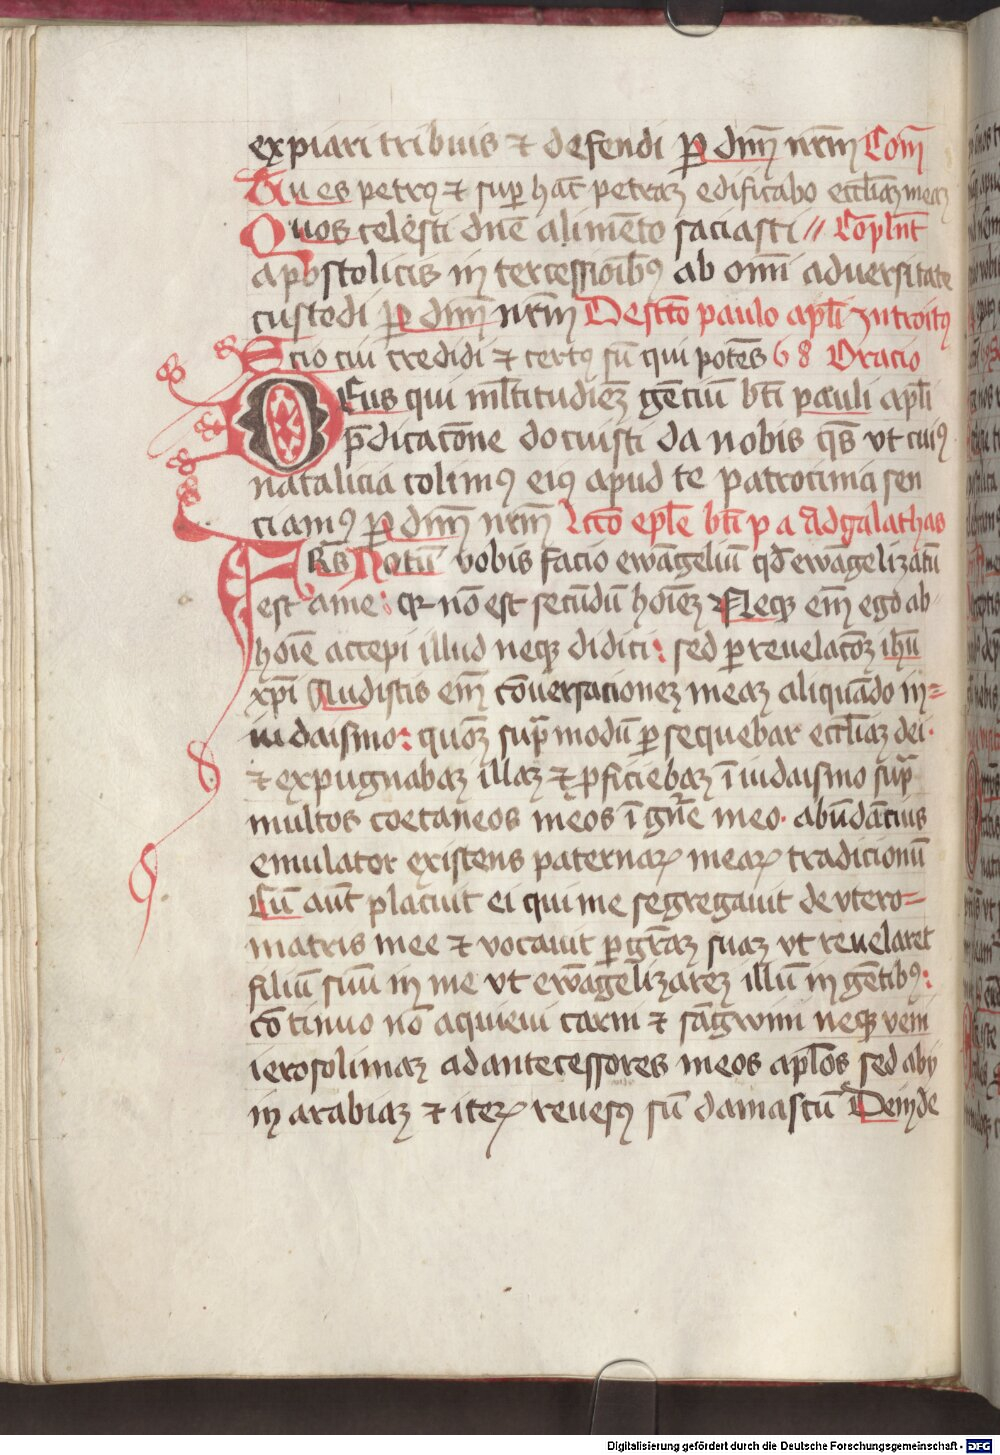 expiari tribuis ⁊ defendi ꝑ dn̄m nr̄m Com̄
Tu es petrꝰ ⁊ sup̄ hāc petraꝫ edificabo eccl̄iaꝫ meaꝫ
Quos celesti dn̄e alimēto saciasti // Cōpl̄nt
apostolicis intercessiōibꝰ ab om̄i aduersitate
custodi ꝑ dn̄m nr̄m De sct̄o paulo apl̄i Introitꝰ
Scio cui credidi ⁊ certꝰ sū qui potēs 68 Oracio
Deus qui ml̄titudīeꝫ gēciū bt̄i pauli apl̄i
p̄dicacōne docuisti da nobis qs̄ vt cuiꝰ
natalicia colimꝰ eiꝰ apud te patrocinia sen
ciamꝰ ꝑ dn̄m nr̄m Lcc̄o epl̄e bt̄i p a Ad galathas
Frēs Notū vobis facio ewāgeliū qd̄ ewāgelizatū
est a me: qꝛ nō est secūdū hoīeꝫ Neqꝫ em̄ ego ab
hoīe accepi illud neqꝫ didici: sed ꝑ reuelacōꝫ ih̄u
xp̄i Audistis em̄ cōuersacioneꝫ meaꝫ aliquādo in=
iudaismo: quōꝫ supͣ modū ꝑsequebar eccl̄iaꝫ dei·
⁊ expugnabaꝫ illaꝫ ⁊ ꝓficiebaꝫ ī iudaismo supͣ
multos coetaneos meos ī gn̄e meo· abūdācius
emulator existens paternaꝝ meaꝝ tradicionū
Cū aūt placuit ei qui me segregauit de vtero=
matris mee ⁊ vocauit ꝑ gr̄aꝫ suaꝫ vt reuelaret
filiū suū in me vt ewāgelizareꝫ illū in gētibꝰ:
cōtinuo nō acquieui carni ⁊ sāgwini neqꝫ veni
ierosolimaꝫ ad antecessores meos apl̄os sed abij
in arabiaꝫ ⁊ iteꝝ reuesꝰ sū damascū Deinde
Digitalisierung gefördert durch die Deutsche Forschungsgemeinschaft - DFG